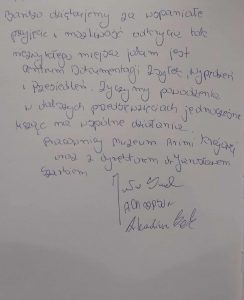 Bardzo dziękujemy za wspaniałe
przyjęcie i możliwość odkrycia tak
niezwykłego miejsca jakim jest
Centrum Dokumentacji Zsyłek, Wypędzeń
i Przesiedleń. Życzymy powodzenia
w dalszych przedsięwzięciach jednocześnie
licząc na wspólne działanie.
Pracownicy Muzeum Armii Krajowej
wraz z dyrektorem dr Jarosławem
Szarkiem